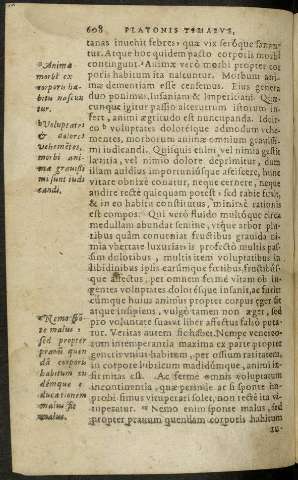 608 PLATONIS TIMAEVS,
tanas inuehit febres: qua vix seróque sanan-
tur. Atque hoc quidem pacto corporis morbi
contingunt. ª Animæ verò morbi propter cor
poris habitum ita nascuntur. Morbum ani-
mæ dementiam esse censemus. Eius genera
duo ponimus, Insaniam & Imperitiam. Quæ-
cunque igitur passio alterutrum istorum in-
fert, animi ægritudo est nuncupanda. Idcir-
co ᵇ voluptates dolorésque admodum vehe-
mentes, morborum animæ omnium grauissi-
mi iudicandi. Quisquis enim vel nimia gestit
lætitia, vel nimio dolore deprimitur, dum
illam auidius importuniúsque asciscere, hunc
vitare obnixè conatur, neque cernere, neque
audire rectè quicquam potest, sed rabie furit,
& in eo habitu constitutus, minimè rationis
est compos. Qui verò fluido multóque circa
medullam abundat semine, vtque arbor pla-
ribus quàm conueniat fructibus grauida ni-
mia vbertate luxuriat: is profectò multis pas-
sim doloribus, multis item voluptatibus in
libidinibus ipsis earúmque fœtibus fructibús-
que affectus, per omnem fermè vitam ob in-
gentes voluptates dolorésque insanit, ac furit
cúmque huius animus propter corpus æger sit
atque insipiens, vulgò tamen non æger, sed
pro voluntate suáue liber affectus falsò puta-
tur. Veritas autem sic habet. Nempe venereo-
rum intemperantia maxima ex parte propter
generis vnius habitum, per ossium raritatem,
in corpore lubricum madidúmque, animi in-
firmitas est. Ac fermè omnis voluptatum
incontinentia, quæ perinde ac si sponte im-
probi simus vituperari solet, non rectè ita vi-
tuperatur. ᶜ Nemo enim sponte malus, sed
propter prauum quendam corporis habitum
ª Animæ
morbi ex
corporis ha-
bitu nascun
tur.
ᵇ Voluptates
& dolores
vehemētes,
morbi ani-
mæ grauissi
mi sunt iudi
candi.
ᶜ Nemo spō
te malus:
sed propter
prauū quen
dā corporis
habitum ru
démque e-
ducationem
malus fit
malus.